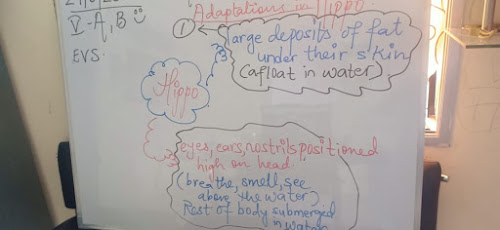 V-A, B
EVS:
Adaptations in Hippo
①
large deposits of fat
under their skin
(afloat in water)
Hippo
eyes, ears, nostrils positioned
high on head.
(breathe, smell, see
above the water)
Rest of body submerged
in water